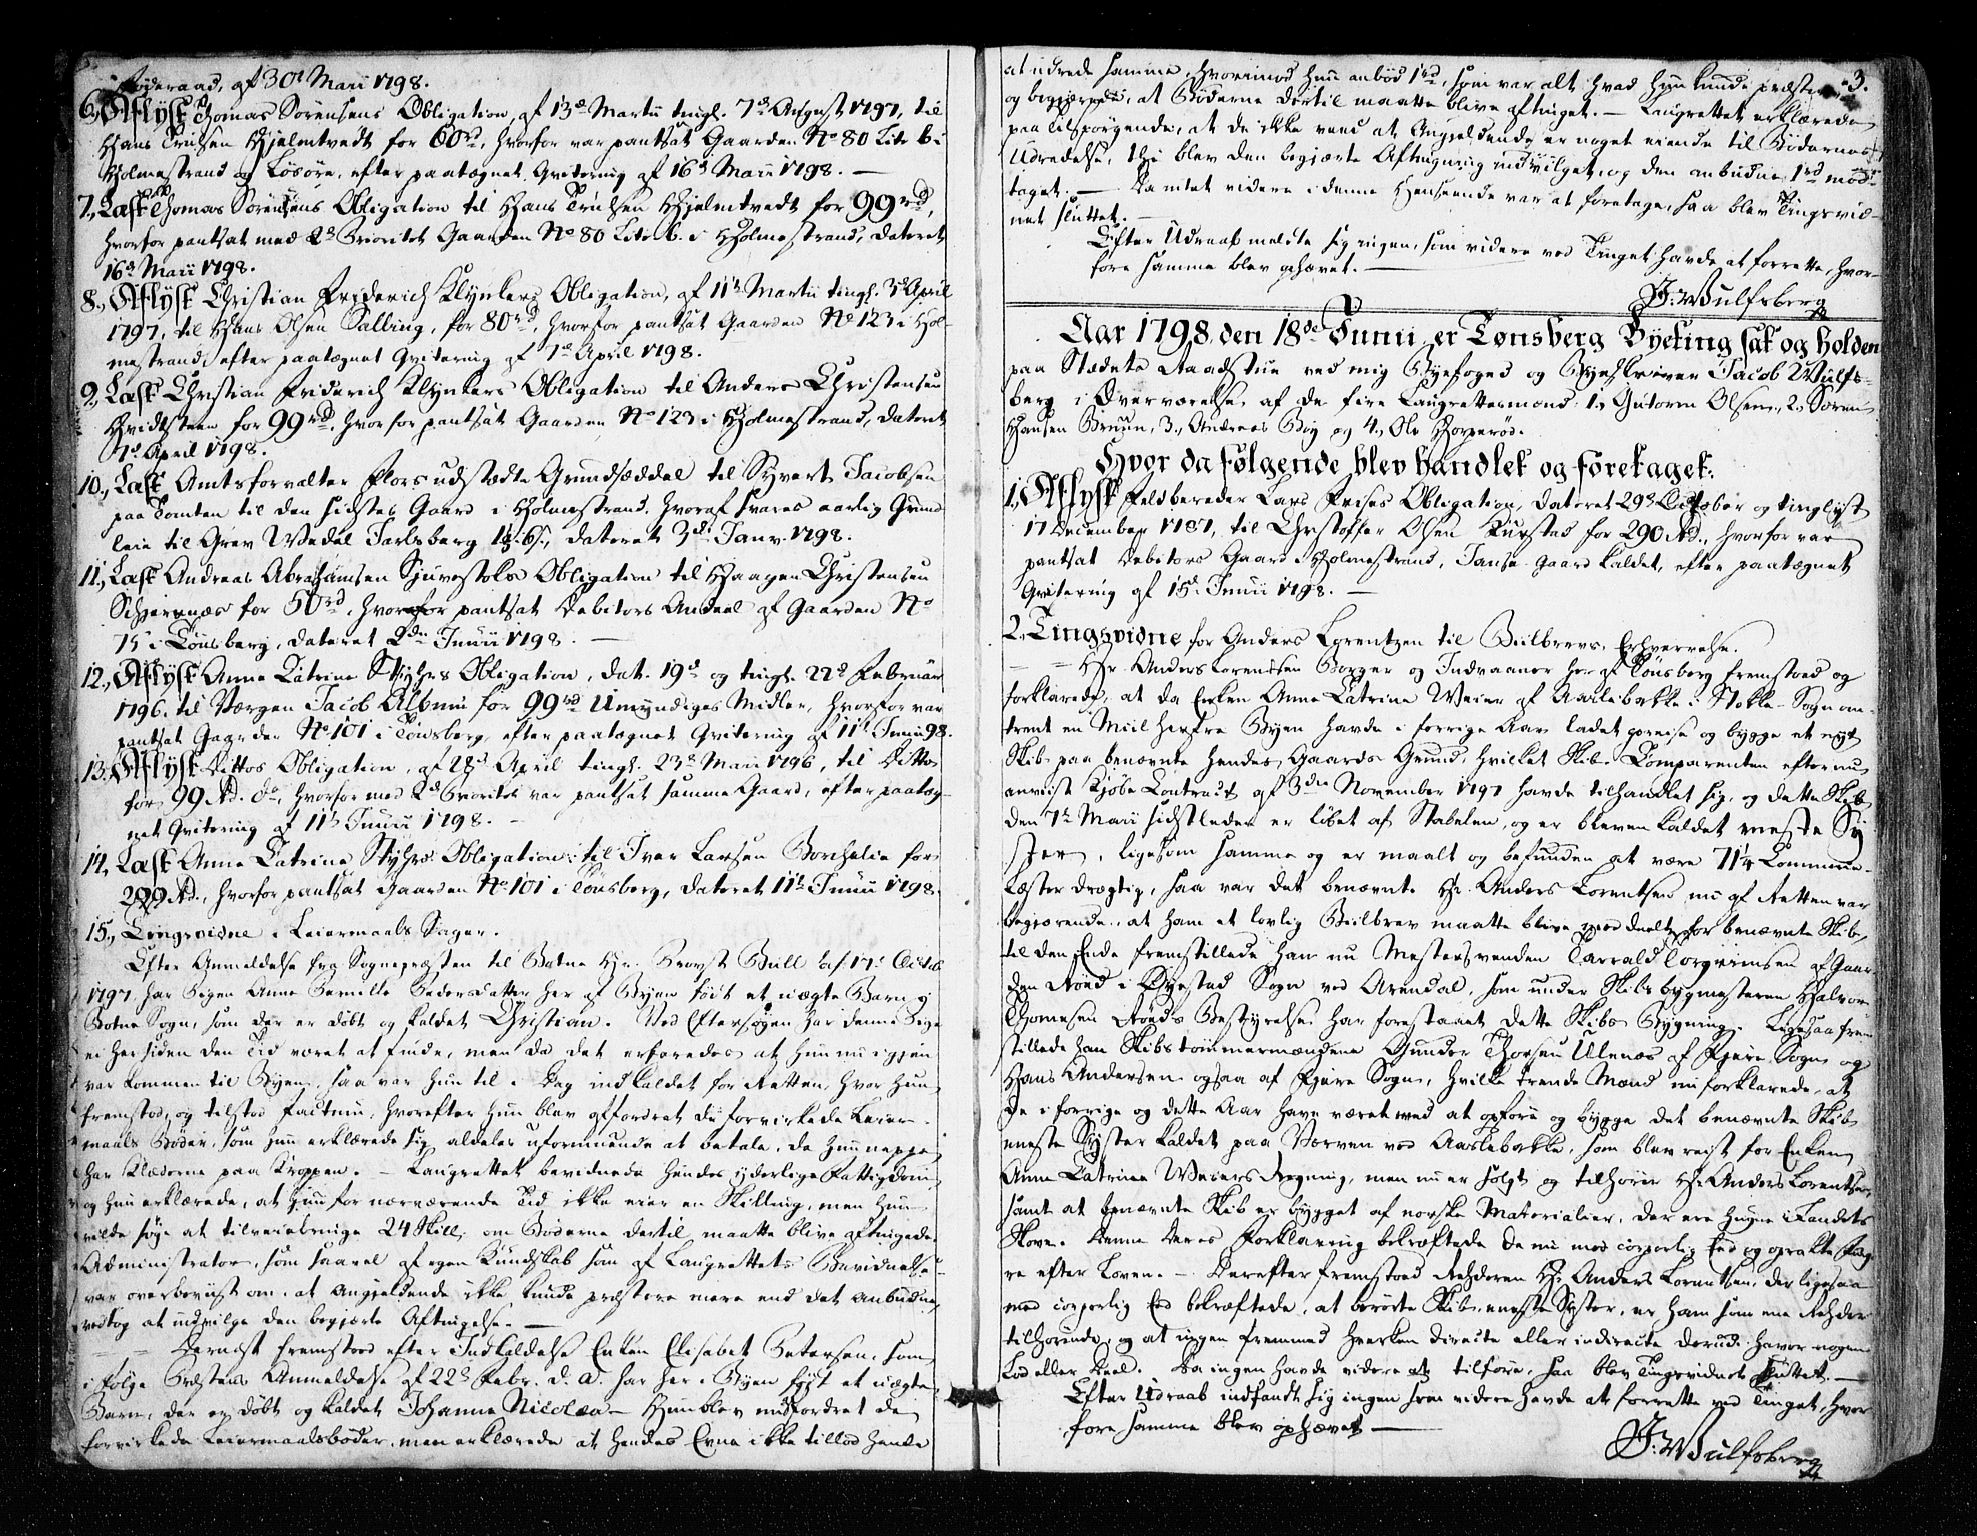 Föderaad, af 30t Maii 1798.
6., Aflyst Thomas Sörensens Obligation, af 13d Martii tingl. 7d August 1797, til
Hans Trulsen Hjelmtvedt for 60rd, hvorfor var pantsat Gaarden No 80 Litr b. i
Holmestrand og Lösöre, efter paategnet Qvitering af 16d Maii 1798. —
7., Læst Thomas Sörensens Obligation til Hans Trulsen Hjelmtvedt for 99rd,
hvorfor pantsat med 2d Prioritet Gaarden No 80 Litr b. i Holmestrand, dateret
16d Maii 1798.
8., Aflyst Christian Friderich Klynkers Obligation, af 11t Martii tingl. 3d April
1797, til Hans Olsen Salling, for 80rd, hvorfor pantsat Gaarden No 123 i Hol-
mestrand, efter paategnet Qvitering af 7d April 1798.
9., Læst Christian Friderich Klynkers Obligation til Anders Christensen
Hvidtsteen for 99rd, hvorfor pantsat Gaarden No 123 i Holmestrand, dateret
7d April 1798.
10., Læst Amtsforvalter Flors udstædte Grundsæddel til Syvert Jacobsen
paa Tomten til den sidstes Gaard i Holmestrand, hvoraf svares aarlig Grund-
leie til Grev Wedel Jarlsberg 1 6s., dateret 3d Janv. 1798.
11., Læst Andreas Abrahamsen Sjuvestoks Obligation til Haagen Christensen
Schjernæs for 50rd, hvorfor pantsat Debitors Andeel af Gaarden No
75 i Tönsberg, dateret 2den Junii 1798. —
12., Aflyst Anne Catrine Styhrs Obligation, dat. 19d og tingl. 22d Februar
1796, til Værgen Jacob Album for 99rd Umyndiges Midler, hvorfor var
pantsat Gaarden No 101 i Tönsberg, efter paategnet Qvitering af 11t Junii 98.
13., Aflyst Dittos Obligation, af 28d April tingl. 23d Maii 1796, til Ditto
for 99 Rd. do, hvorfor med 2d Prioritet var pantsat samme Gaard, efter paateg-
net Qvitering af 11t Junii 1798. —
14., Læst Anne Catrine Styhrs Obligation til Iver Larsen Borchalie for
299 Rd., hvorfor pantsat Gaarden No 101 i Tönsberg, dateret 11t Junii 1798.
15., Tingsvidne i Leiermaals Sager.
Efter Anmeldelse fra Sognepræsten til Botne Hr. Provst Bull af 17d Octob.
1797, har Pigen Anne Pernille Pedersdatter her af Byen födt et uægte Barn i
Botne Sogn, som der er döbt og kaldet Christian. Ved Eftersögen har denne Pige
ei her siden den Tid været at finde, men da det erfaredes at hun nu igjen
var kommen til Byen, saa var hun til i Dag indkaldet for Retten, hvor hun
fremstod, og tilstod Factum, hvorefter hun blev affordret de forvirkede Leier-
maals Böder, som hun erklærede sig aldeles uformuende at betale, da hun neppe
har Klæderne paa Kroppen. — Laugrettet bevidnede hendes yderlige Fattigdom,
og hun erklærede, at hun for nærværende Tid ikke eier en Skilling, men hun
vilde söge at tilveiebringe 24 Skill., om Böderne dertil maatte blive aftingede.
Administrator, som saavel af egen Kundskab som af Laugrettets Bevidnelse
var overbeviist om, at angjeldende ikke kunde præstere mere end det anbudne,
vedtog at indvilge den begjærte Aftingelse. —
Dernæst fremstod efter Indkaldelse Enken Elisabet Petersen, som
i fölge Præstens Anmeldelse af 22d Febr. d. A. har her i Byen födt et uægte
Barn, der er döbt og kaldet Johanne Nicolea — Hun blev affordret de
forvirkede Leiermaalsböder, men erklærede at hendes Evne ikke tillod hende
3.
at udrede samme, hvorimod hun anböd 1rd, som var alt hvad hun kunde præstere,
og begjærede, at Böderne dertil maatte blive aftinget. — Laugrettet erklærede
paa tilspörgende, at de ikke veed at Angjeldende er noget eiende til Bödernes
Udredelse, thi blev den begjærte Aftingning indvilget, og den anbudne 1rd mod-
taget. — Da intet videre i denne Henseende var at foretage, saa blev Tingsvid-
net sluttet. —
Efter Udraab meldte sig ingen, som videre ved Tinget havde at forrette, hvor-
fore samme blev ophævet. —
J. Wulfsberg
Aar 1798 den 18de Junii er Tønsberg Byeting sat og holden
paa Stædets Raadstue ved mig Byefoged og Byeskriver Jacob Wulfs-
berg i Overværelse af de fire Laugrettesmænd: 1., Gutorm Olsen, 2., Sören
Hansen Bruun, 3., Andreas Bög og 4., Ole Horperöd.
Hvor da følgende blev handlet og foretaget:
1., Aflyst Feldbereder Lars Frises Obligation, dateret 29d October og tinglyst
17 December 1787, til Christoffer Olsen Rustad for 290 Rd., hvorfor var
pantsat Debitors Gaard i Holmestrand, Jansegaard kaldet, efter paategnet
Qvitering af 15d Junii 1798. —
2., Tingsvidne for Anders Lorentzen til Biilbrevs Erhvervelse.
Hr. Anders Lorentsen Borger og Indvaaner her af Tönsberg fremstoed og
forklarede, at da Enken Anne Catrine Weier af Aaslebakke i Stokke Sogn om-
trent en Miil herfra Byen havde i forrige Aar ladet porreise og bygge et nyt
Skib paa benævnte hendes Gaards Grund, hvilket Skib Comparenten efter nu
anviist Kjöbe Contract af 3die November 1797 havde tilhandlet sig, og dette Skib
den 7t Maii sidstleden er löbet af Stabelen, og er bleven kaldet eneste Sy-
ster, ligesom samme og er maalt og befunden at være 71 1/4 Commerce
Læster drægtig, saa var det benævnte Hr. Anders Lorentsen nu af Retten var
begjærende, at ham et lovlig Biilbrev maatte blive meddeelt for benævnte Skib,
til den Ende fremstillede han nu Mestersvenden Tarrald Torgrimsen af Gaar-
den Röed i Öyestad Sogn ved Arendal, som under Skibsbygmesteren Halvor
Thomesen Röeds Bestyrelse har forestaaet dette Skibs Bygning. Ligesaa frem-
stillede han Skibstömmermændene Gunder Thorsen Ulenæs af Fjære Sogn og
Hans Andersen ogsaa af Fjære Sogn, hvilke trende Mænd nu forklarede, at
de i forrige og dette Aar have været med at opföre og bygge det benævnte Skib
eneste Syster kaldet paa Værven ved Aaslebakke, som blev reist for Enken
Anne Catrine Weiers Regning, men nu er solgt og tilhörer Hr. Anders Lorentsen,
samt at benævnte Skib er bygget af norske Materialier, der ere hugne i Landets
Skove. Denne deres Forklaring bekræftede de nu med corporlig Eed og oprakte Fing-
re efter Loven. — Derefter fremstoed Rehderen Hr. Anders Lorentsen, der ligesaa
med corporlig Eed bekræftede, at berörte Skib, eneste Syster, er ham som ene Rehder
tilhörende, og at ingen fremmed hverken directe eller indirecte derudi haver nogen
Lod eller Deel. Da ingen havde videre at tilföre, saa blev Tingsvidnet sluttet. —
Efter Udraab indfandt sig ingen som videre havde at forrette ved Tinget, hvor-
fore samme blev ophævet —
J. Wulfsberg